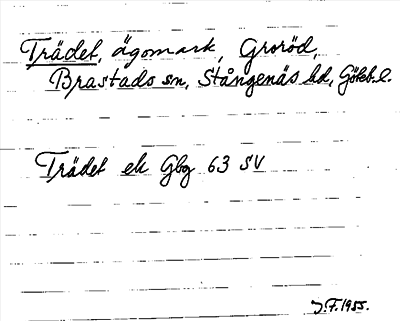 Trädet, ägomark, Groröd,
Brastads sn, Stångenäs hd, Göteb. l.
Trädet ek Gbg 63 SV
J.F. 1955.